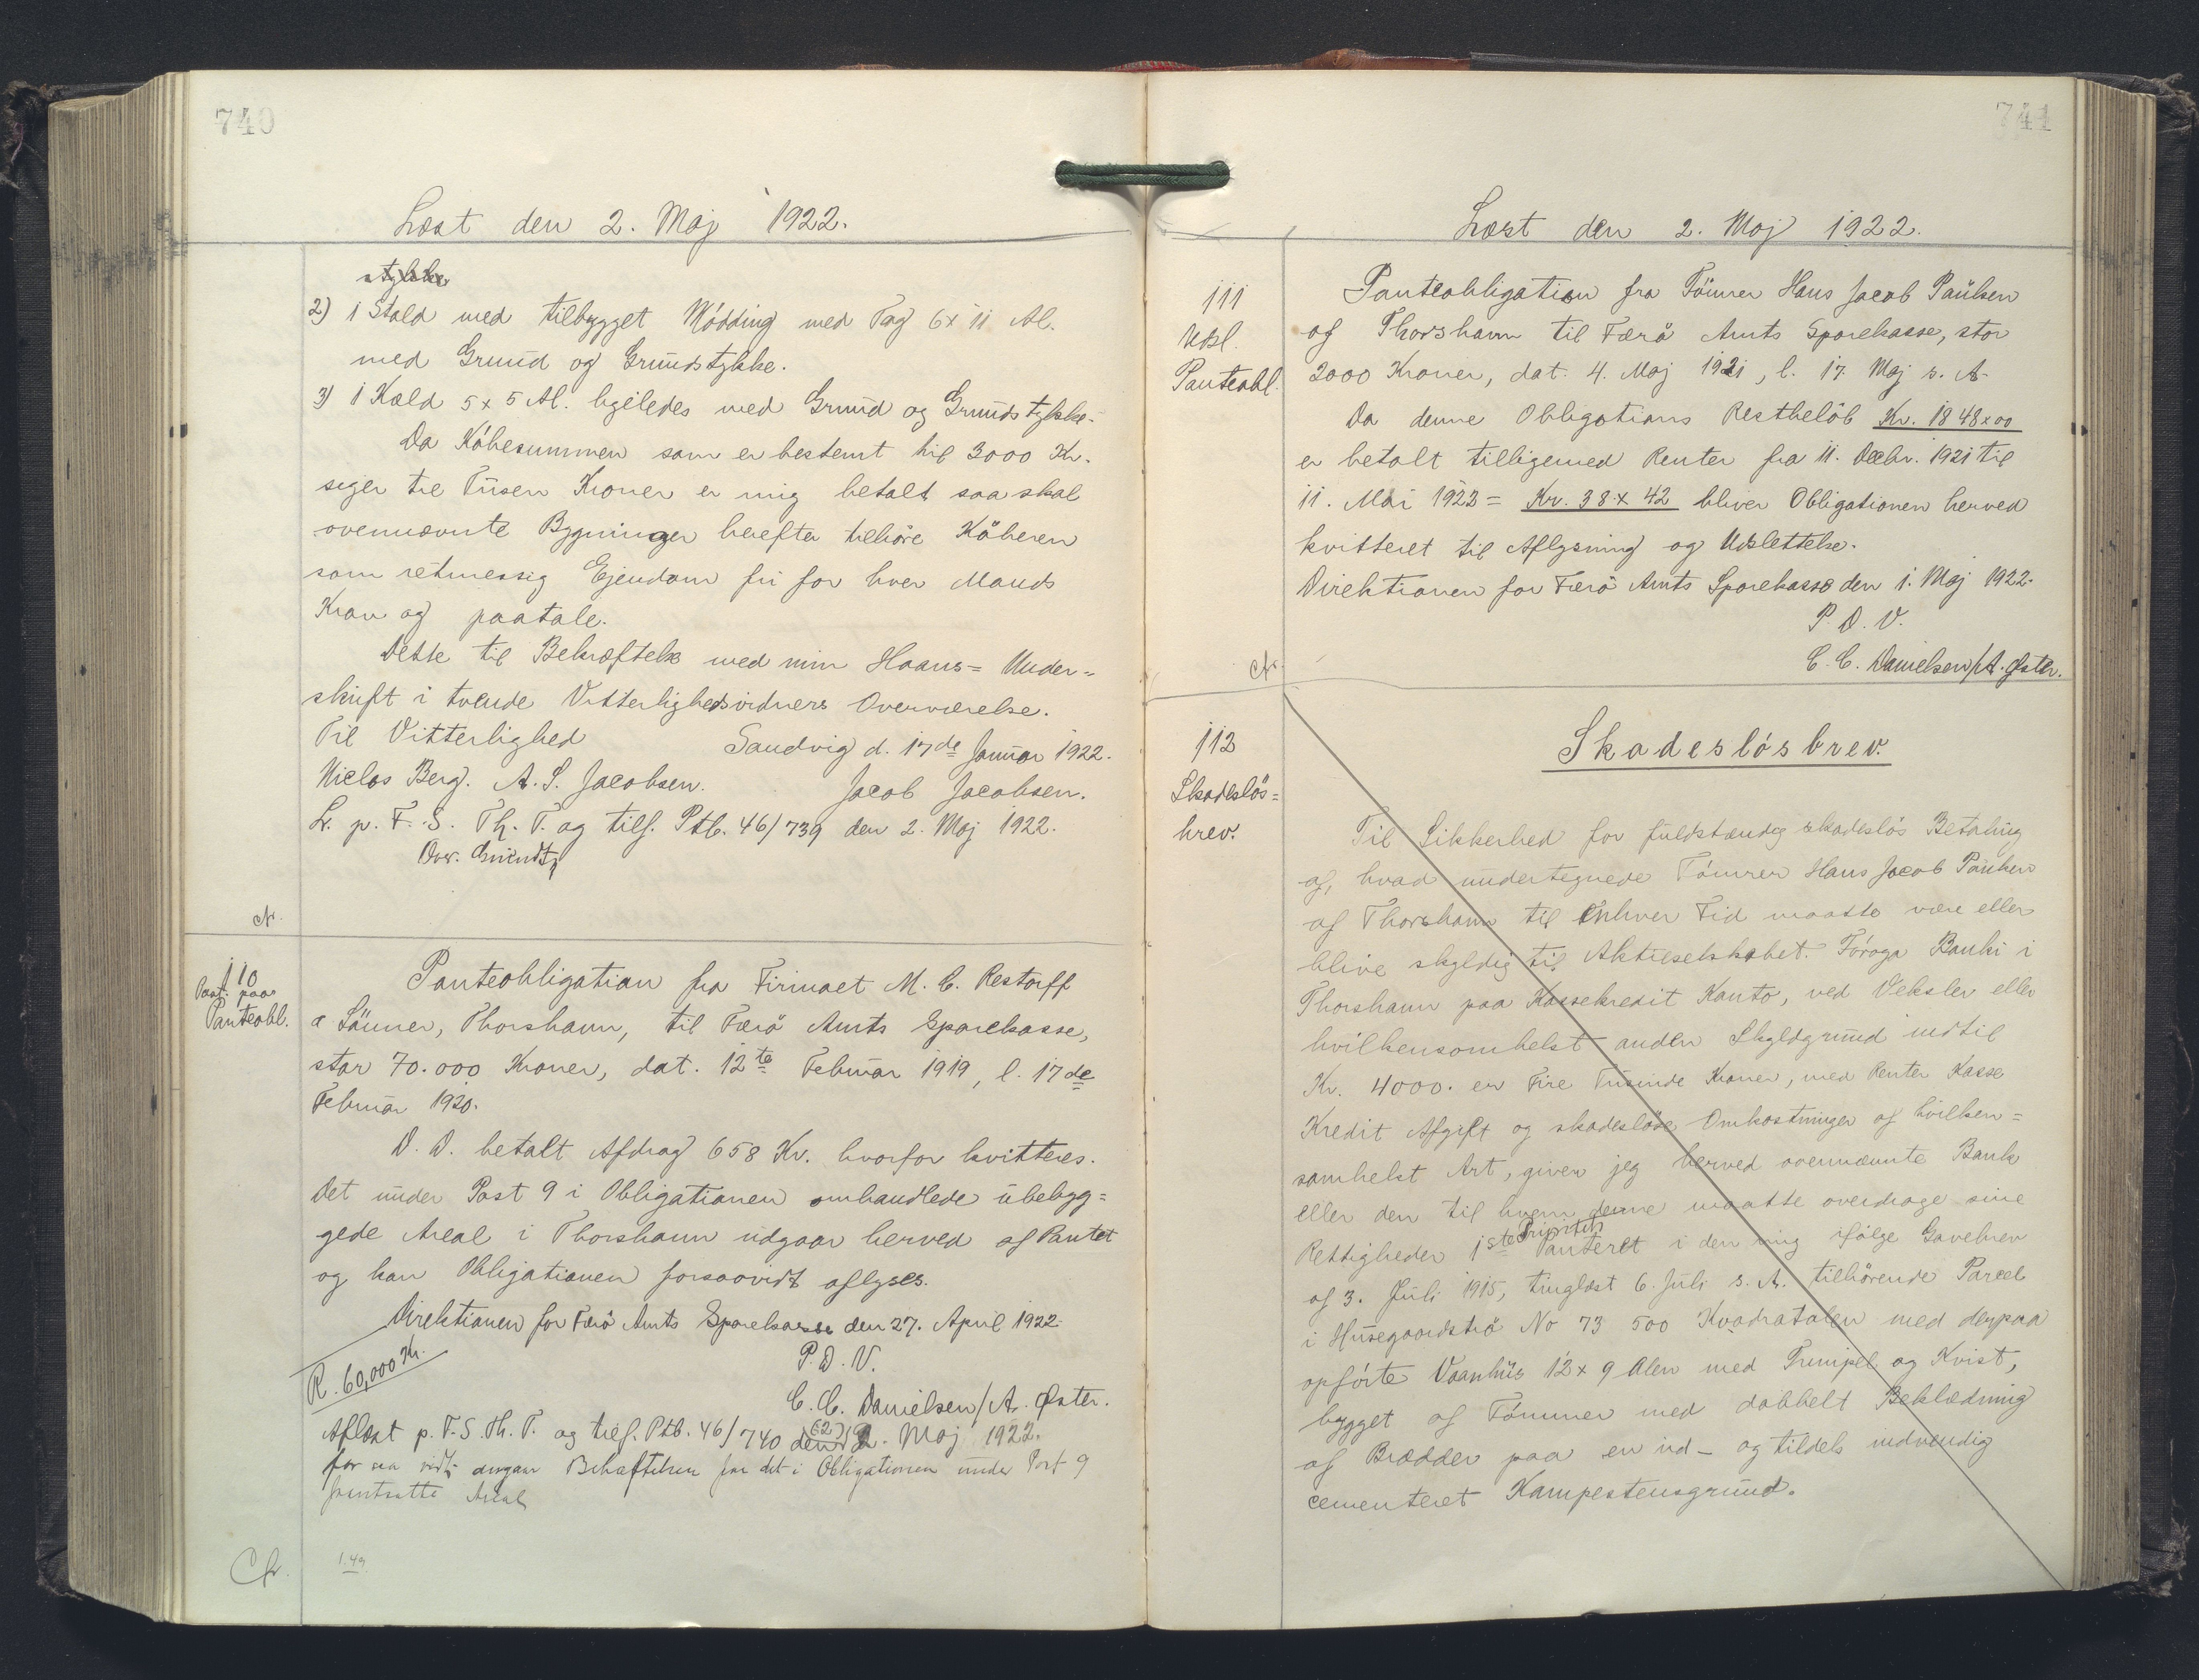 740
Læst den 2. Maj 1922.
stykke
2) 1 Stald med tilbygget Mödding med Tag 6 x 11 Al.
med Grund og Grundstykke.
3) 1 Kæld 5 x 5 Al. ligeledes med Grund og Grundstykke.
Da Köbesummen som er bestemt til 3000 Kr.
siger tre Tusen Kroner er mig betalt saa skal
ovennævnte Bygninger herefter tilhöre Köberen
som retmessig Ejendom fri for hver Mands
Krav og paatale.
Dette til Bekræftelse med min Haans= Under=
skrift i tvende Vitterlighedsvidners Overværelse.
Til Vitterlighed Sandvig d. 17de Januar 1922.
Niclas Berg. A. S. Jacobsen. Jacob Jacobsen.
L. p. F. S. Th. T. og tilf. Ptb. 46/739 den 2. Maj 1922.
cfr.
110
Paat. paa
Panteobl.
Panteobligation fra Firmaet M. C. Restorff
a Sönner, Thorshavn, til Færö Amts Sparekasse,
stor 70.000 Kroner, dat. 12te Februar 1919, l. 17de
Februar 1920.
D. D. betalt Afdrag 658 Kr. hvorfor kvitteres.
Det under Post 9 i Obligationen omhandlede ubebyg=
gede Areal i Thorshavn udgaar herved af Pantet
og kan Obligationen forsaavidt aflyses.
Direktionen for Færö Amts Sparekasse den 27. April 1922.
P. D. V.
R. 60,000 Kr.
C. C. Danielsen/A. Øster.
Aflæst p. F. S. Th. T. og tilf. Ptb. 46/740 den 2. Maj 1922.
for saa vidt angaar Behæftelsen paa det i Obligationen under Post 9
pantsatte Areal
Cfr.
1.49
741
Læst den 2. Maj 1922.
111
Udsl.
Panteobl.
Panteobligation fra Tömrer Hans Jacob Paulsen
af Thorshavn til Færö Amts Sparekasse, stor
2000 Kroner, dat. 4. Maj 1921, l. 17. Maj s. A.
Da denne Obligations Restbelöb Kr. 1848x00
er betalt tilligemed Renter fra 11. Decbr. 1921 til
11. Mai 1922 = Kr. 38 x 42 bliver Obligationen herved
kvitteret til Aflysning og Udslettelse.
Direktionen for Færö Amts Sparekasse den 1. Maj 1922.
P. D. V.
C. C. Danielsen/A. Øster.
cfr.
112
Skadeslös=
brev.
Skadeslösbrev.
Til Sikkerhed for fuldstændig skadeslös Betaling
af, hvad undertegnede Tömrer Hans Jacob Paulsen
af Thorshavn til Enhver Tid maatte være eller
blive skyldig til Aktieselskabet Föroya Banki i
Thorshavn paa Kassekredit Konto, ved Veksler eller
hvilkensomhelst anden Skyldgrund indtil
Kr. 4000. er Fire Tusinde Kroner, med Renter Kasse
Kredit Afgift og skadeslöse Omkostninger af hvilken=
somhelst Art, giver jeg herved ovennævnte Bank
eller den til hvem denne maatte overdrage sine
Prioritets
Rettigheder 1ste Panteret i den mig ifölge Gavebrev
af 3. Juli 1915, tinglæst 6. Juli s. A. tilhörende Parcel
i Husegaardströ No 73 500 Kvadratalen med derpaa
opförte Vaanhus 12 x 9 Alen med Trempel og Kvist,
bygget af Tömmer med dobbelt Beklædning
af Brædder paa en ud- og tildels indvendig
cementeret Kampestensgrund.